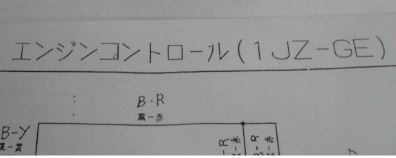 エンジンコントロール(1JZ-GE)
B-R
黒-赤
B-Y
-R
-赤
B-R
黒-赤